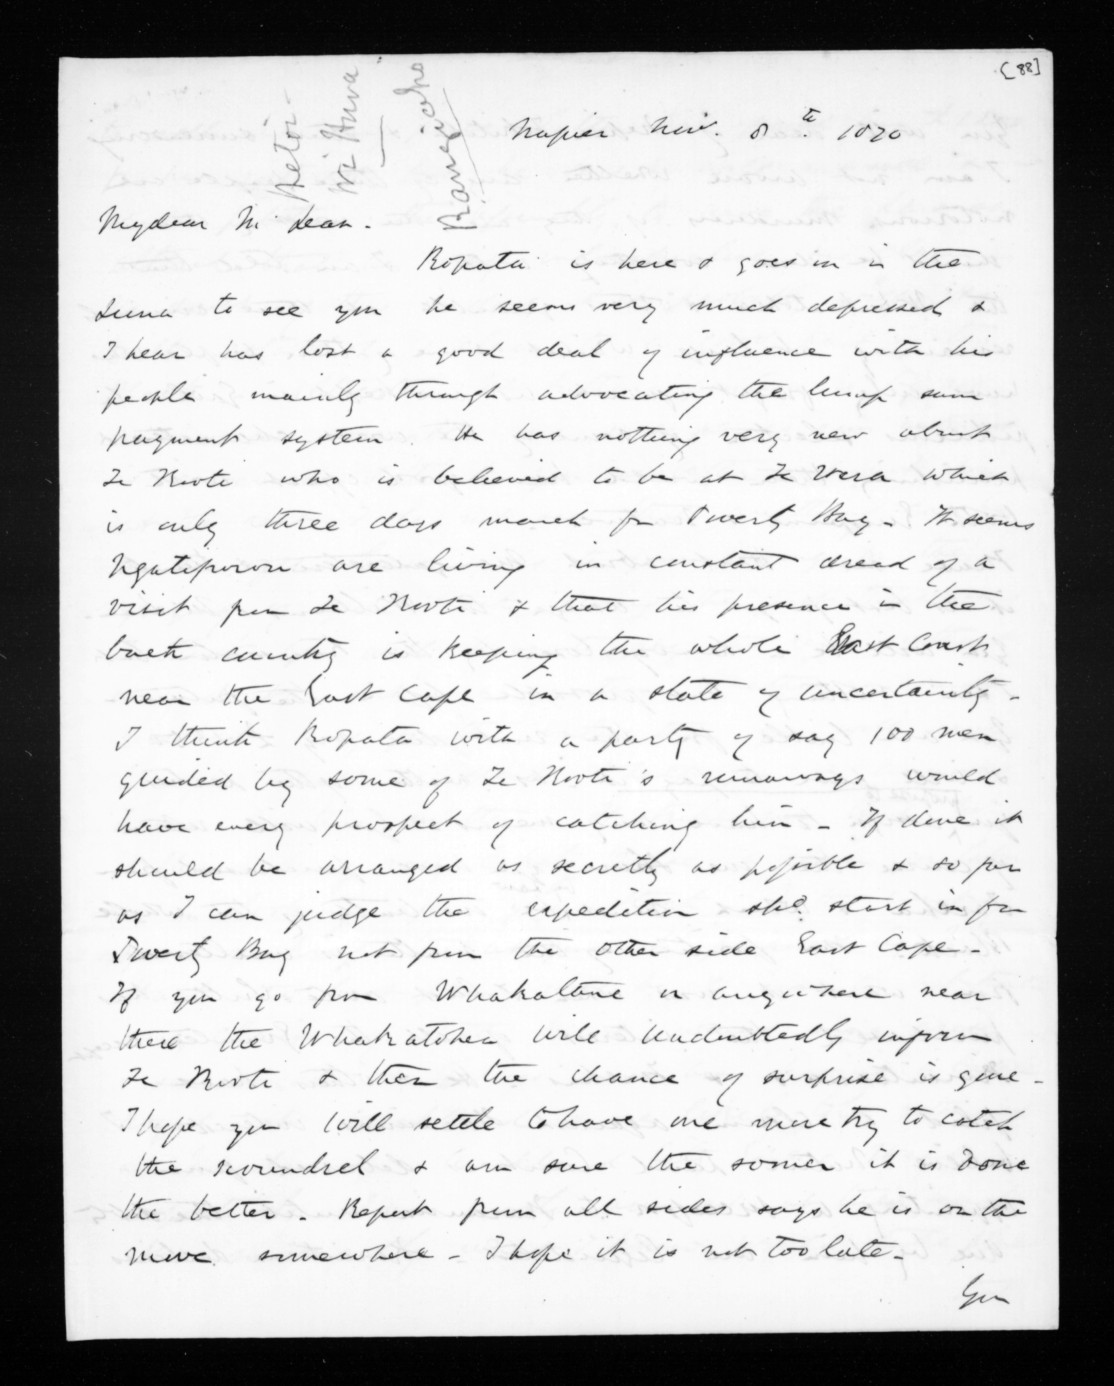 [88]
Retoi -
Wi Huna
Rangiaho
Napier Nov. 8th. 1870
My dear McLean.
Ropata is here & goes on in the
Luna to see you he seems very much depressed &
I hear has lost a good deal of influence with his
people mainly through advocating the lump sum
payment system. He has nothing very new about
Te Kooti who is believed to be at Te Wera which
is only three days march fm Poverty Bay - It seems
Ngatiporou are living in constant dread of a
visit from Te Kooti & that his presence in the
back country is keeping the whole East Coast
near the East Cape in a state of uncertainty -
I think Ropata with a party of say 100 men
guided by some of Te Kooti's runaways would
have every prospect of catching him - If done it
should be arranged as secretly as possible & so far
as I can judge the expedition shd. start in fm
Poverty Bay not from the other side East Cape -
If you go from Whakatane or anywhere near
there the Whakatohea will undoubtedly inform
Te Kooti & then the chance of surprise is gone -
I hope you will settle to have one more try to catch
the scoundrel & am sure the sooner it is done
the better - Report from all sides says he is on the
move somewhere - I hope it is not too late -
You